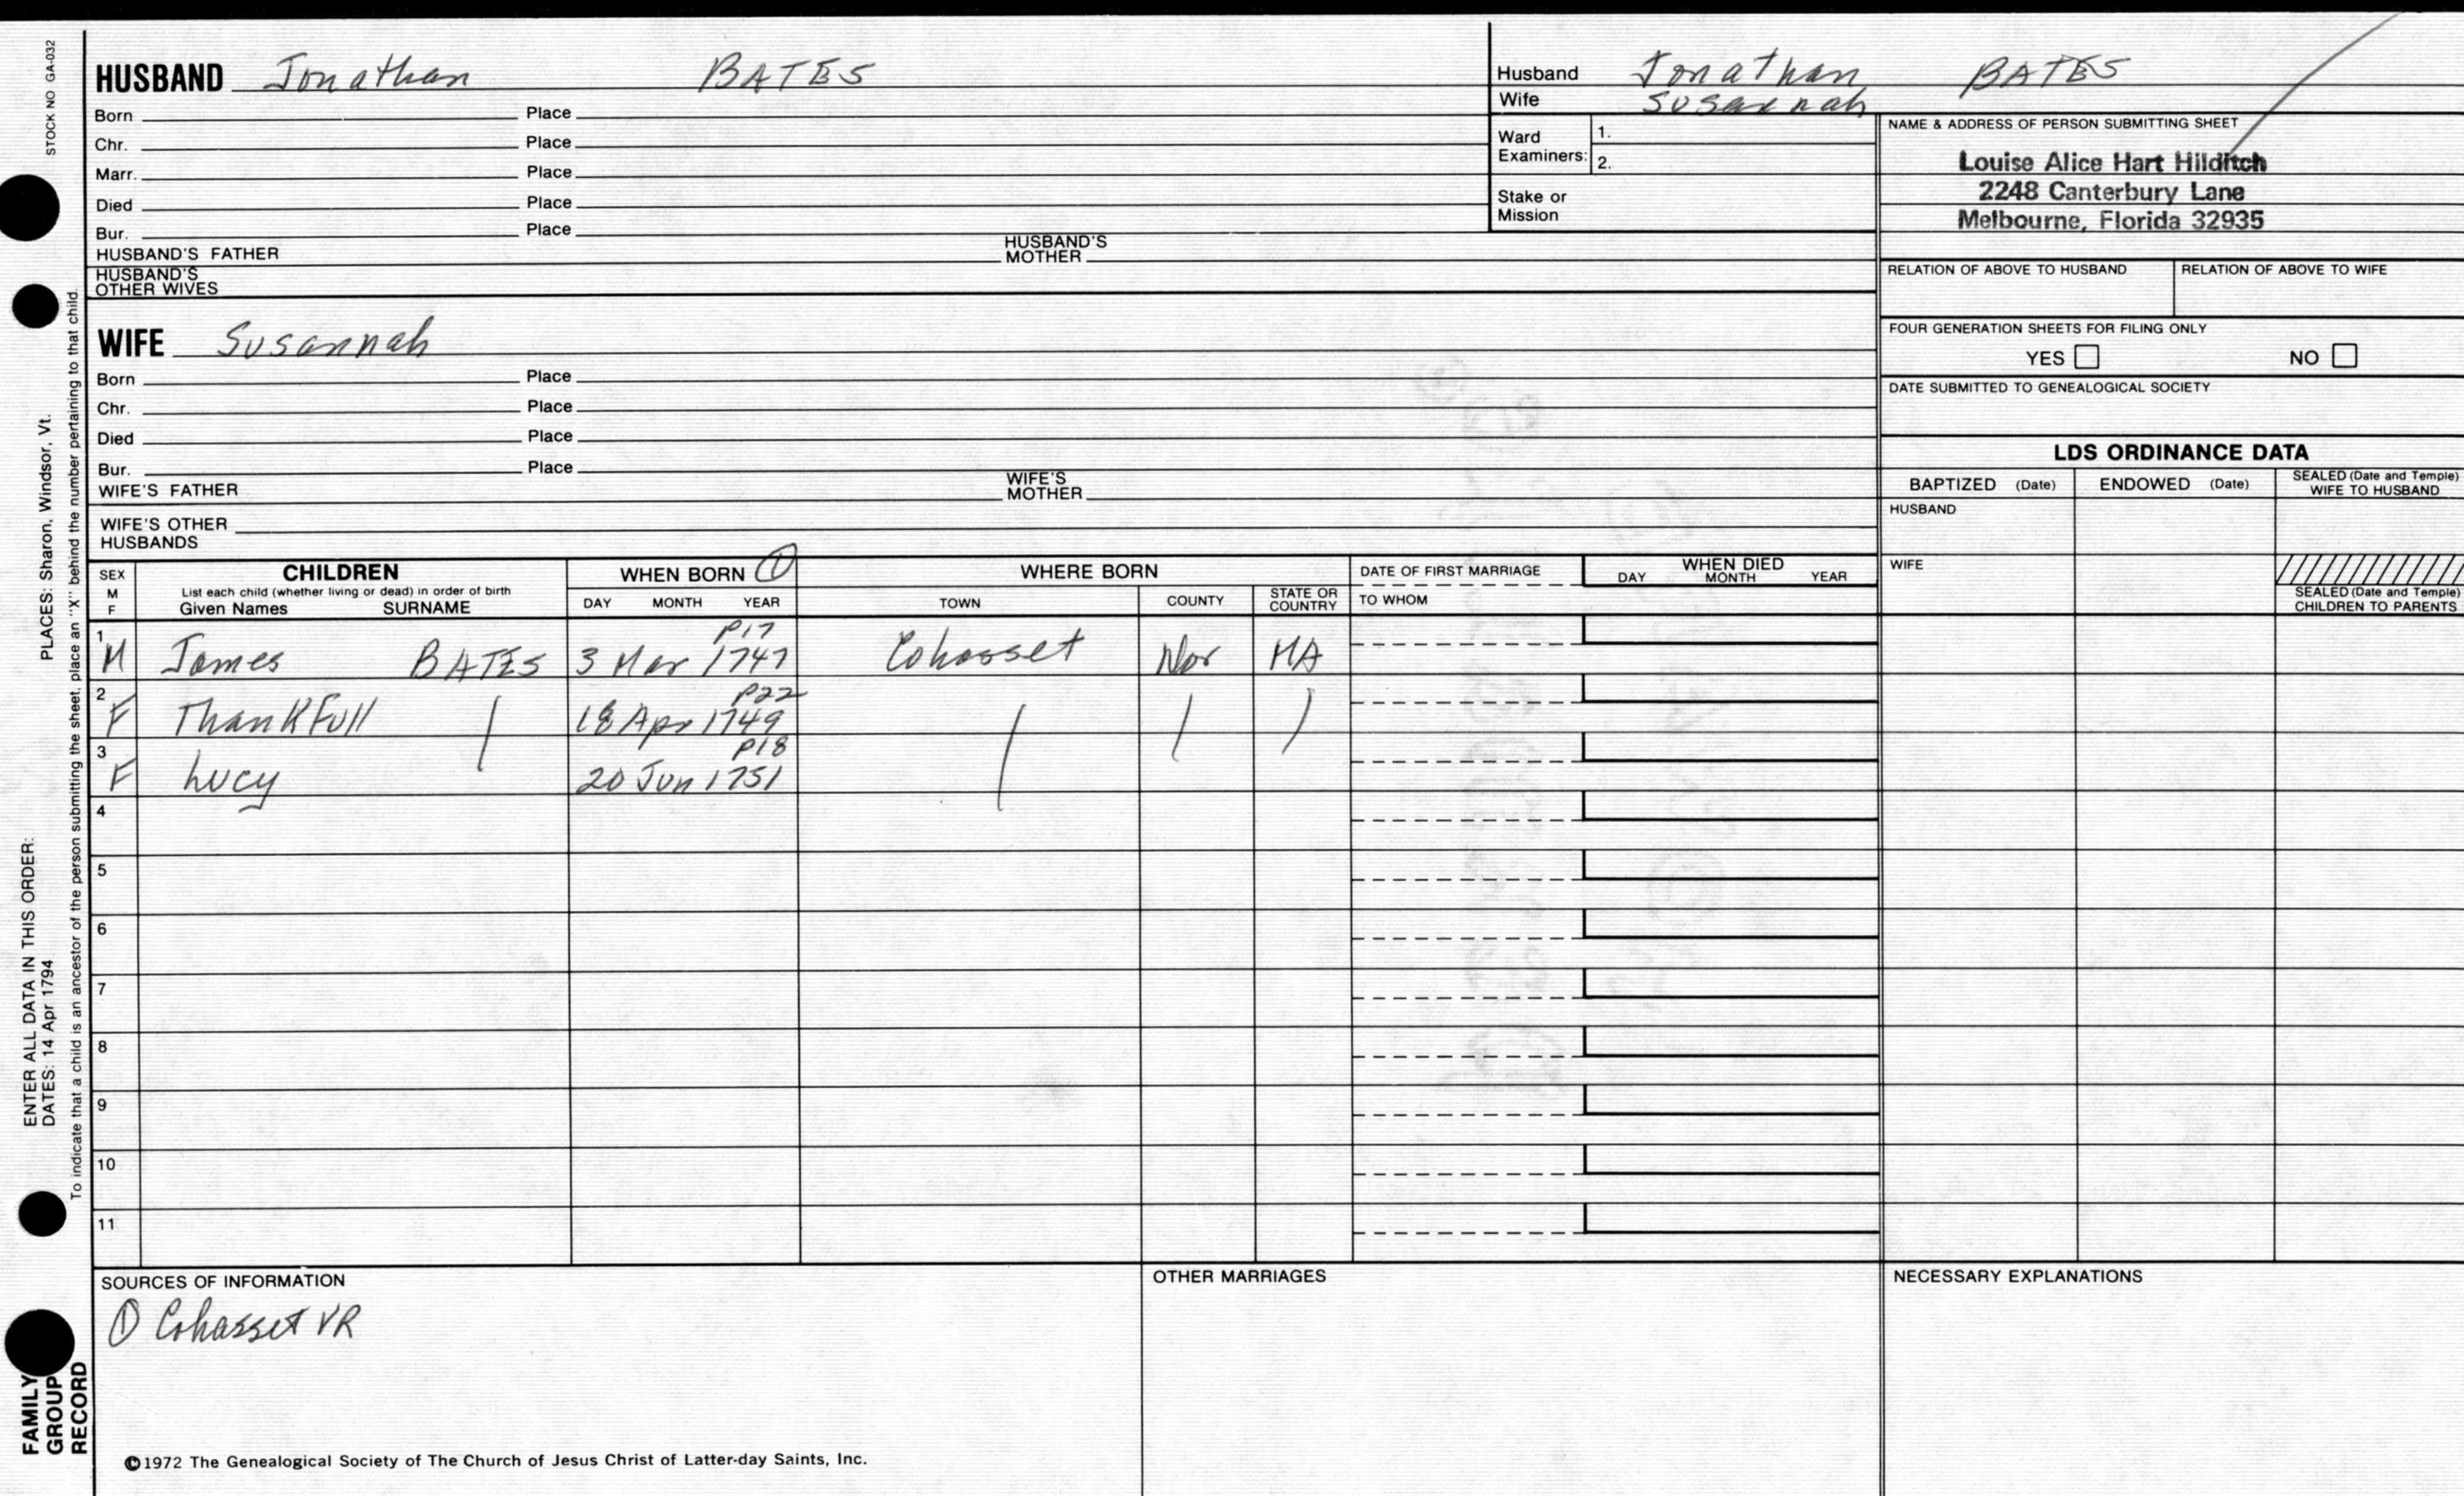 STOCK NO GA-032
PLACES: Sharon, Windsor, Vt.
ENTER ALL DATA IN THIS ORDER:
DATES: 14 Apr 1794
To indicate that a child is an ancestor of the person submitting the sheet, place an "X" behind the number pertaining to that child.
FAMILY
GROUP
RECORD
HUSBAND Jonathan BATES
Born Place
Chr. Place
Marr. Place
Died Place
Bur. Place
HUSBAND'S FATHER HUSBAND'S MOTHER
HUSBAND'S OTHER WIVES
WIFE Susannah
Born Place
Chr. Place
Died Place
Bur. Place
WIFE'S FATHER WIFE'S MOTHER
WIFE'S OTHER HUSBANDS
Husband Jonathan BATES
Wife Susannah
Ward Examiners: 1.
2.
Stake or Mission
NAME & ADDRESS OF PERSON SUBMITTING SHEET
Louise Alice Hart Hilditch
2248 Canterbury Lane
Melbourne, Florida 32935
RELATION OF ABOVE TO HUSBAND RELATION OF ABOVE TO WIFE
FOUR GENERATION SHEETS FOR FILING ONLY
YES NO
DATE SUBMITTED TO GENEALOGICAL SOCIETY
LDS ORDINANCE DATA
BAPTIZED (Date) ENDOWED (Date) SEALED (Date and Temple) WIFE TO HUSBAND
HUSBAND
WIFE
SEALED (Date and Temple) CHILDREN TO PARENTS
SEX M F CHILDREN WHEN BORN ① WHERE BORN DATE OF FIRST MARRIAGE WHEN DIED
List each child (whether living or dead) in order of birth
Given Names SURNAME DAY MONTH YEAR TOWN COUNTY STATE OR COUNTRY TO WHOM DAY MONTH YEAR
P17
1 M James BATES 3 Mar 1747 Cohasset Nor MA
P22
2 F ThankFull 18 Apr 1749
P18
3 F Lucy 20 Jun 1751
4
5
6
7
8
9
10
11
SOURCES OF INFORMATION OTHER MARRIAGES NECESSARY EXPLANATIONS
① Cohasset VR
©1972 The Genealogical Society of The Church of Jesus Christ of Latter-day Saints, Inc.